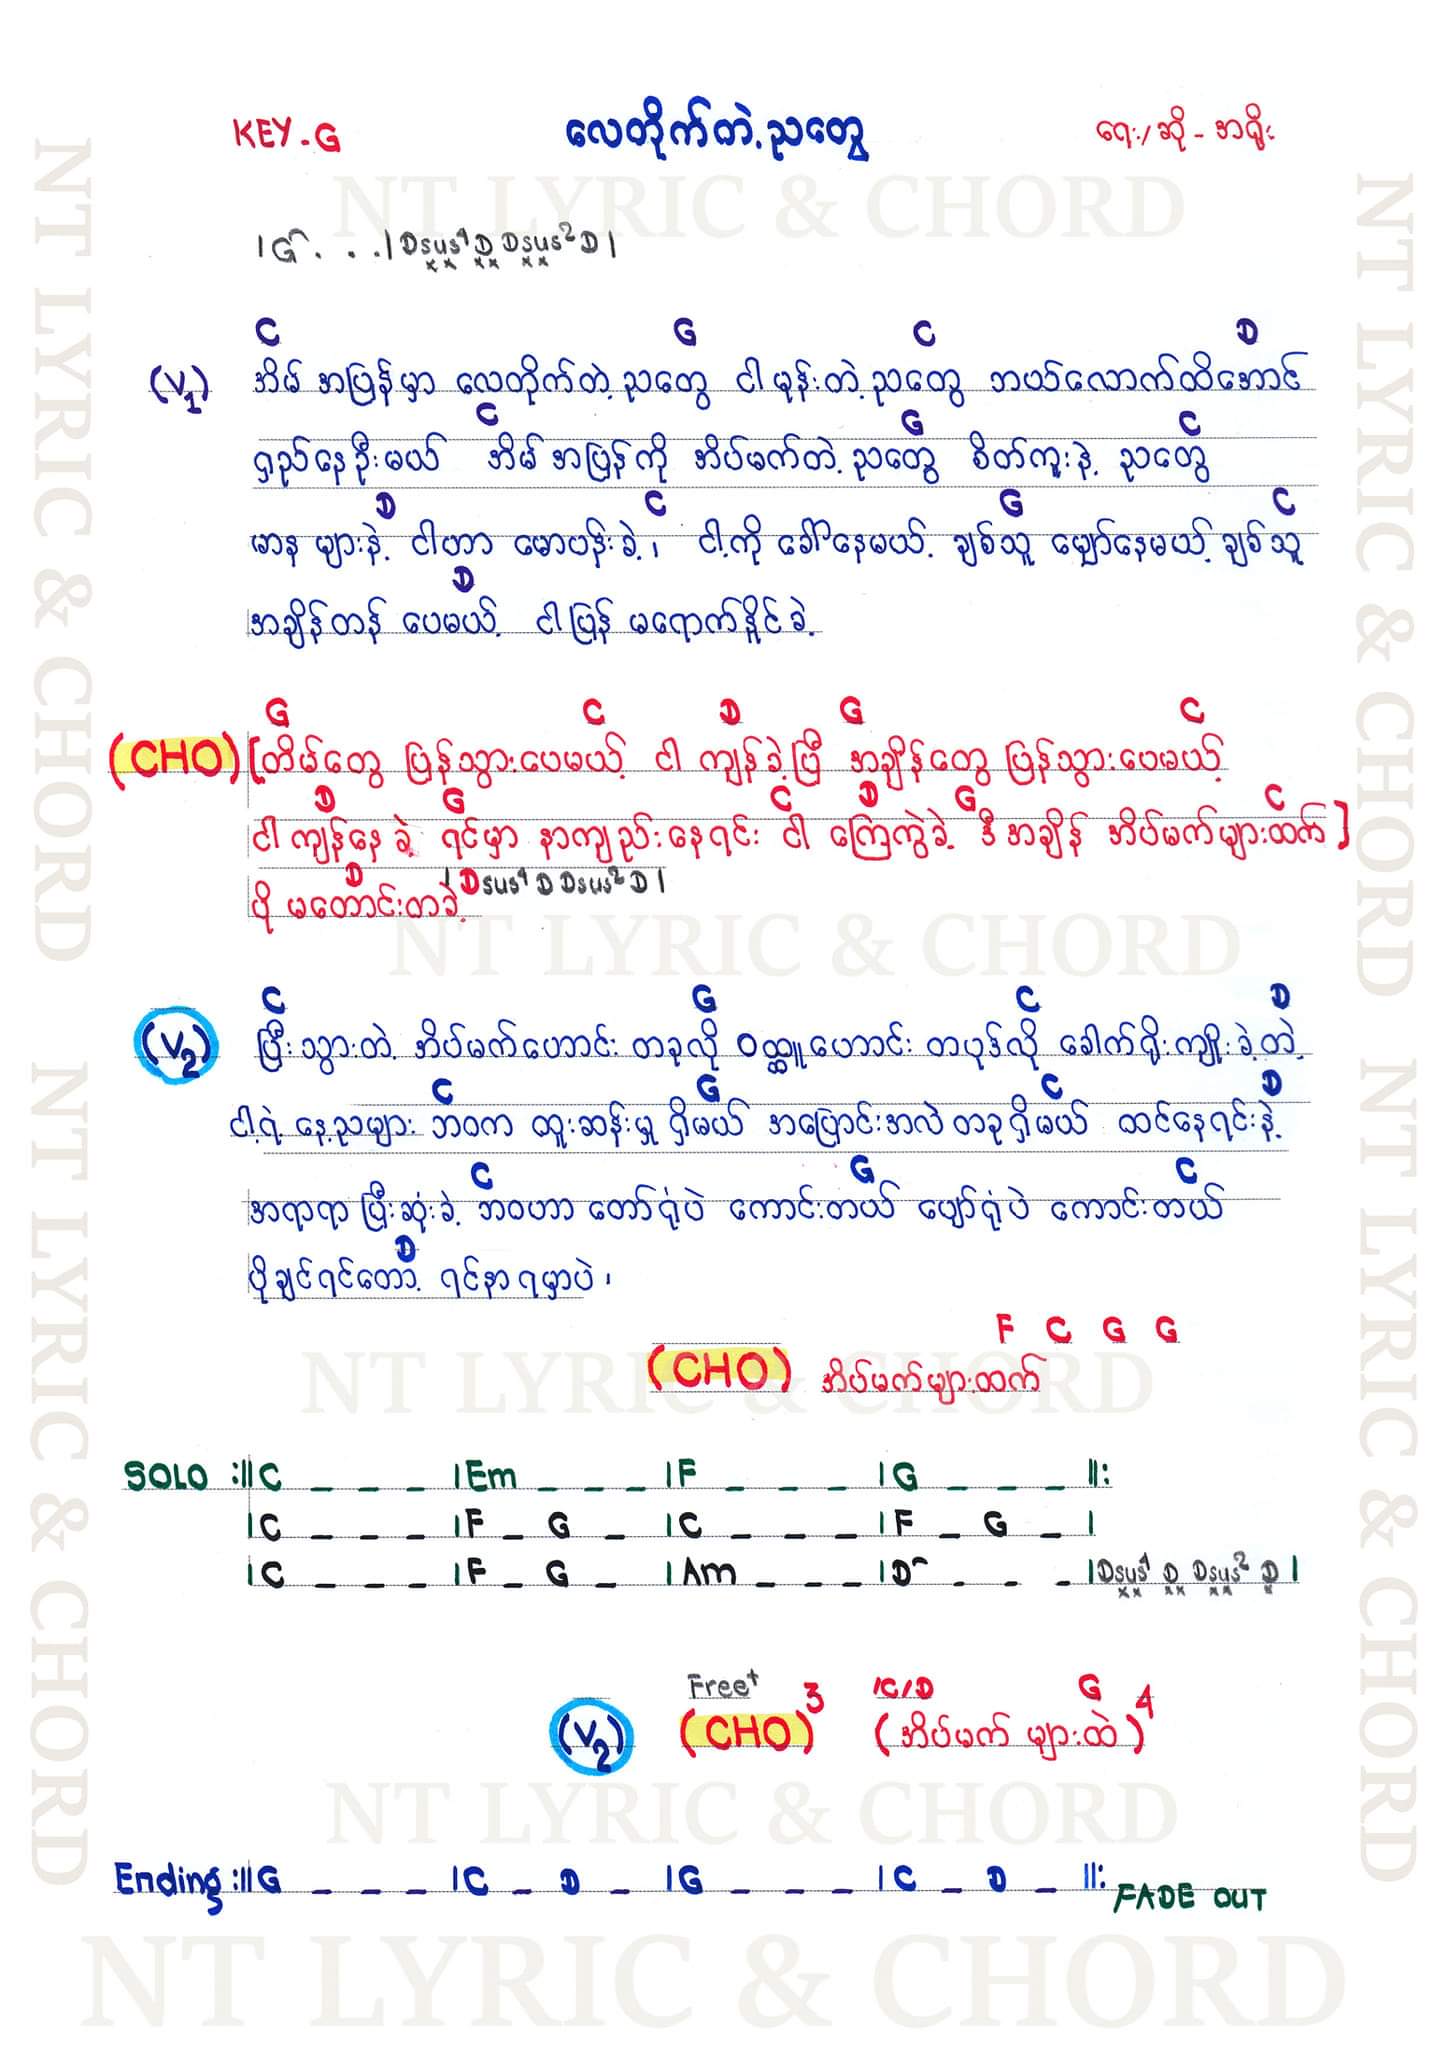 KEY-G လေတိုက်တဲ့ညတွေ ရေး/ဆို - အရိုး
|G . . .|Dsus4 D Dsus2 D|
C G C D
(V1) အိမ်အပြန်မှာ လေတိုက်တဲ့ညတွေ ငါမုန်းတဲ့ညတွေ ဘယ်လောက်ထိအောင်
C G C
ရှည်နေဦးမယ် အိမ်အပြန်ကို အိပ်မက်တဲ့ညတွေ စိတ်ကူးနဲ့ ညတွေ
D C G C
မာန များနဲ့ ငါဟာ မောပန်းခဲ့၊ ငါ့ကို ခေါ်နေမယ့် ချစ်သူ မျှော်နေမယ့် ချစ်သူ
D
အချိန်တန် ပေမယ့် ငါပြန် မရောက်နိူင်ခဲ့
G C D G C
(CHO) [တိမ်တွေ ပြန်သွားပေမယ့် ငါ ကျန်ခဲ့ပြီ အချိန်တွေ ပြန်သွားပေမယ့်
D G C D G C
ငါကျန်နေခဲ့ ရင်မှာ နာကျည်းနေရင်း ငါ ကြေကွဲခဲ့ ဒီအချိန် အိပ်မက်များထက်]
D |Dsus4 D Dsus2 D|
ပို မတောင်းတခဲ့
C G C D
(V2) ပြီးသွားတဲ့ အိပ်မက်ဟောင်း တခုလို ဝတ္ထူဟောင်း တပုဒ်လို ခေါက်ရိုးကျိူးခဲ့တဲ့
C G C D
ငါ့ရဲ့ နေ့ညများ ဘဝက ထူးဆန်းမှု ရှိမယ် အပြောင်းအလဲတခုရှိမယ် ထင်နေရင်းနဲ့
C G C
အရာရာ ပြီးဆုံးခဲ့ ဘဝဟာ တော်ရုံပဲ ကောင်းတယ် ပျော်ရုံပဲ ကောင်းတယ်
D
ပိုချင်ရင်တော့ ရင်နာရမှာပဲ၊
F C G G
(CHO) အိပ်မက်များထက်
SOLO :||C _ _ _ |Em _ _ _ |F _ _ _ |G _ _ _ ||:
|C _ _ _ |F _ G _ |C _ _ _ |F _ G _ |
|C _ _ _ |F _ G _ |Am _ _ _ |D _ _ _ |Dsus4 D Dsus2 D|
Free+ |C/D G
(V2) (CHO)3 (အိပ်မက် များထဲ)4
Ending :||G _ _ _ |C _ D _ |G _ _ _ |C _ D _ ||: FADE OUT
NT LYRIC & CHORD